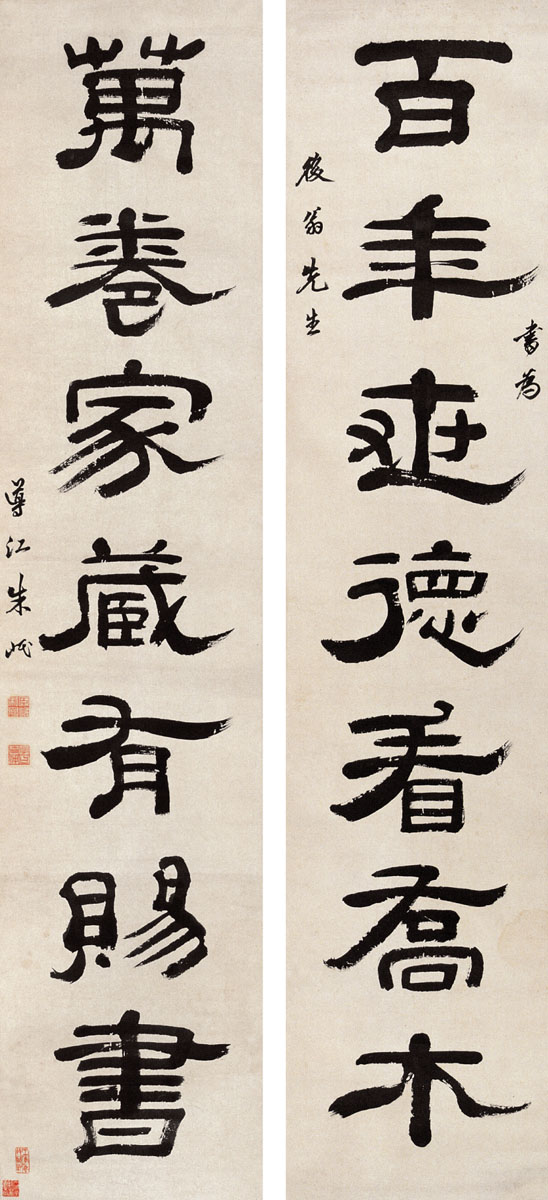 百年延德看喬木
書為
後翁先生
萬卷家藏有賜書
導江朱岷